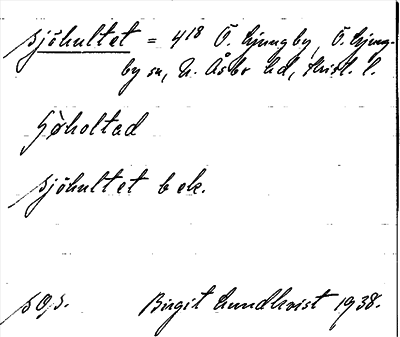 Sjöhultet = 4¹⁸ Ö. Ljungby, Ö. Ljung-
by sn, N. Åsbo hd, Krist. l.
Sjöhultet bek.
Birgit Lundkvist 1938.